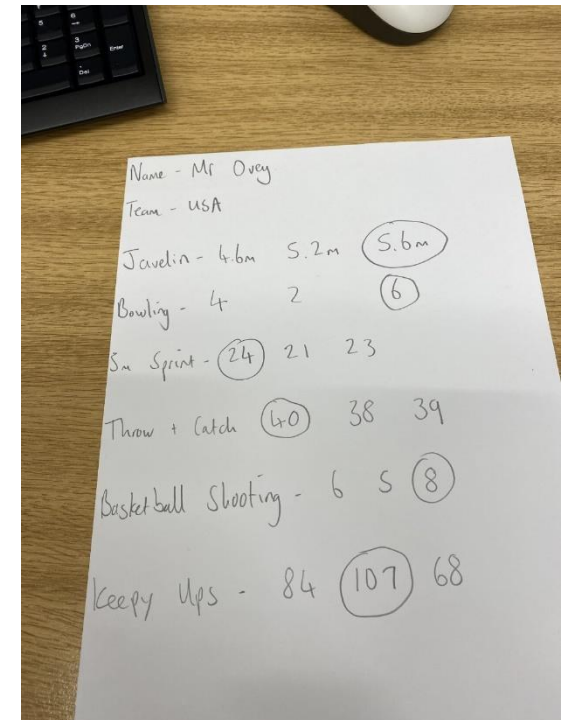 5
6
2
3
PgDn
Enter
.
Del
Name - Mr Ovey
Team - USA
Javelin - 4.6m 5.2m 5.6m
Bowling - 4 2 6
5m Sprint - 24 21 23
Throw + Catch 40 38 39
Basketball Shooting - 6 5 8
Keepy Ups - 84 107 68